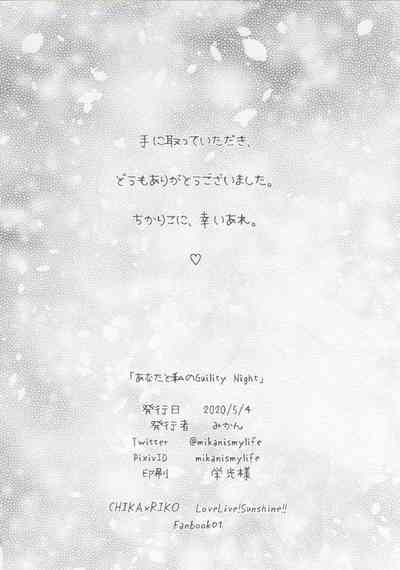 手に取っていただき、
どうもありがとうございました。
ちかりこに、幸いあれ。
♡
「あなたと私のGuility Night」
発行日 2020/5/4
発行者 みかん
Twitter @mikanismylife
PixivID mikanismylife
印刷 栄光様
CHIKA×RIKO LoveLive!Sunshine!!
Fanbook01